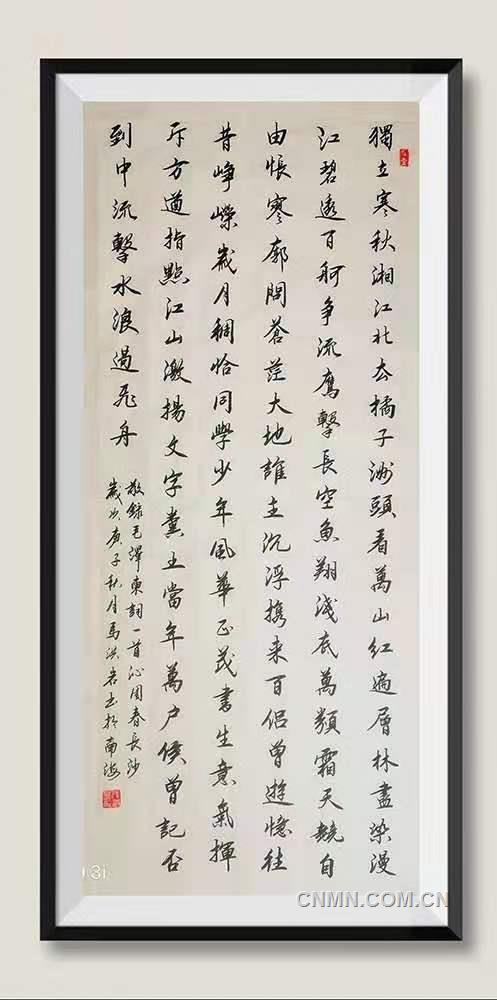 獨立寒秋湘江北去橘子洲頭看萬山紅遍層林盡染漫
江碧透百舸争流鷹擊長空魚翔淺底萬類霜天競自
由悵寥廓問蒼茫大地誰主沉浮携来百侣曾遊憶往
昔崢嶸嵗月稠恰同學少年風華正茂書生意氣揮
斥方遒指點江山激揚文字糞土當年萬户侯曾記否
到中流擊水浪遏飛舟
敬録毛澤東詞一首沁园春長沙
嵗次庚子秋月馬洪岩书於南海
CNMN.COM.CN